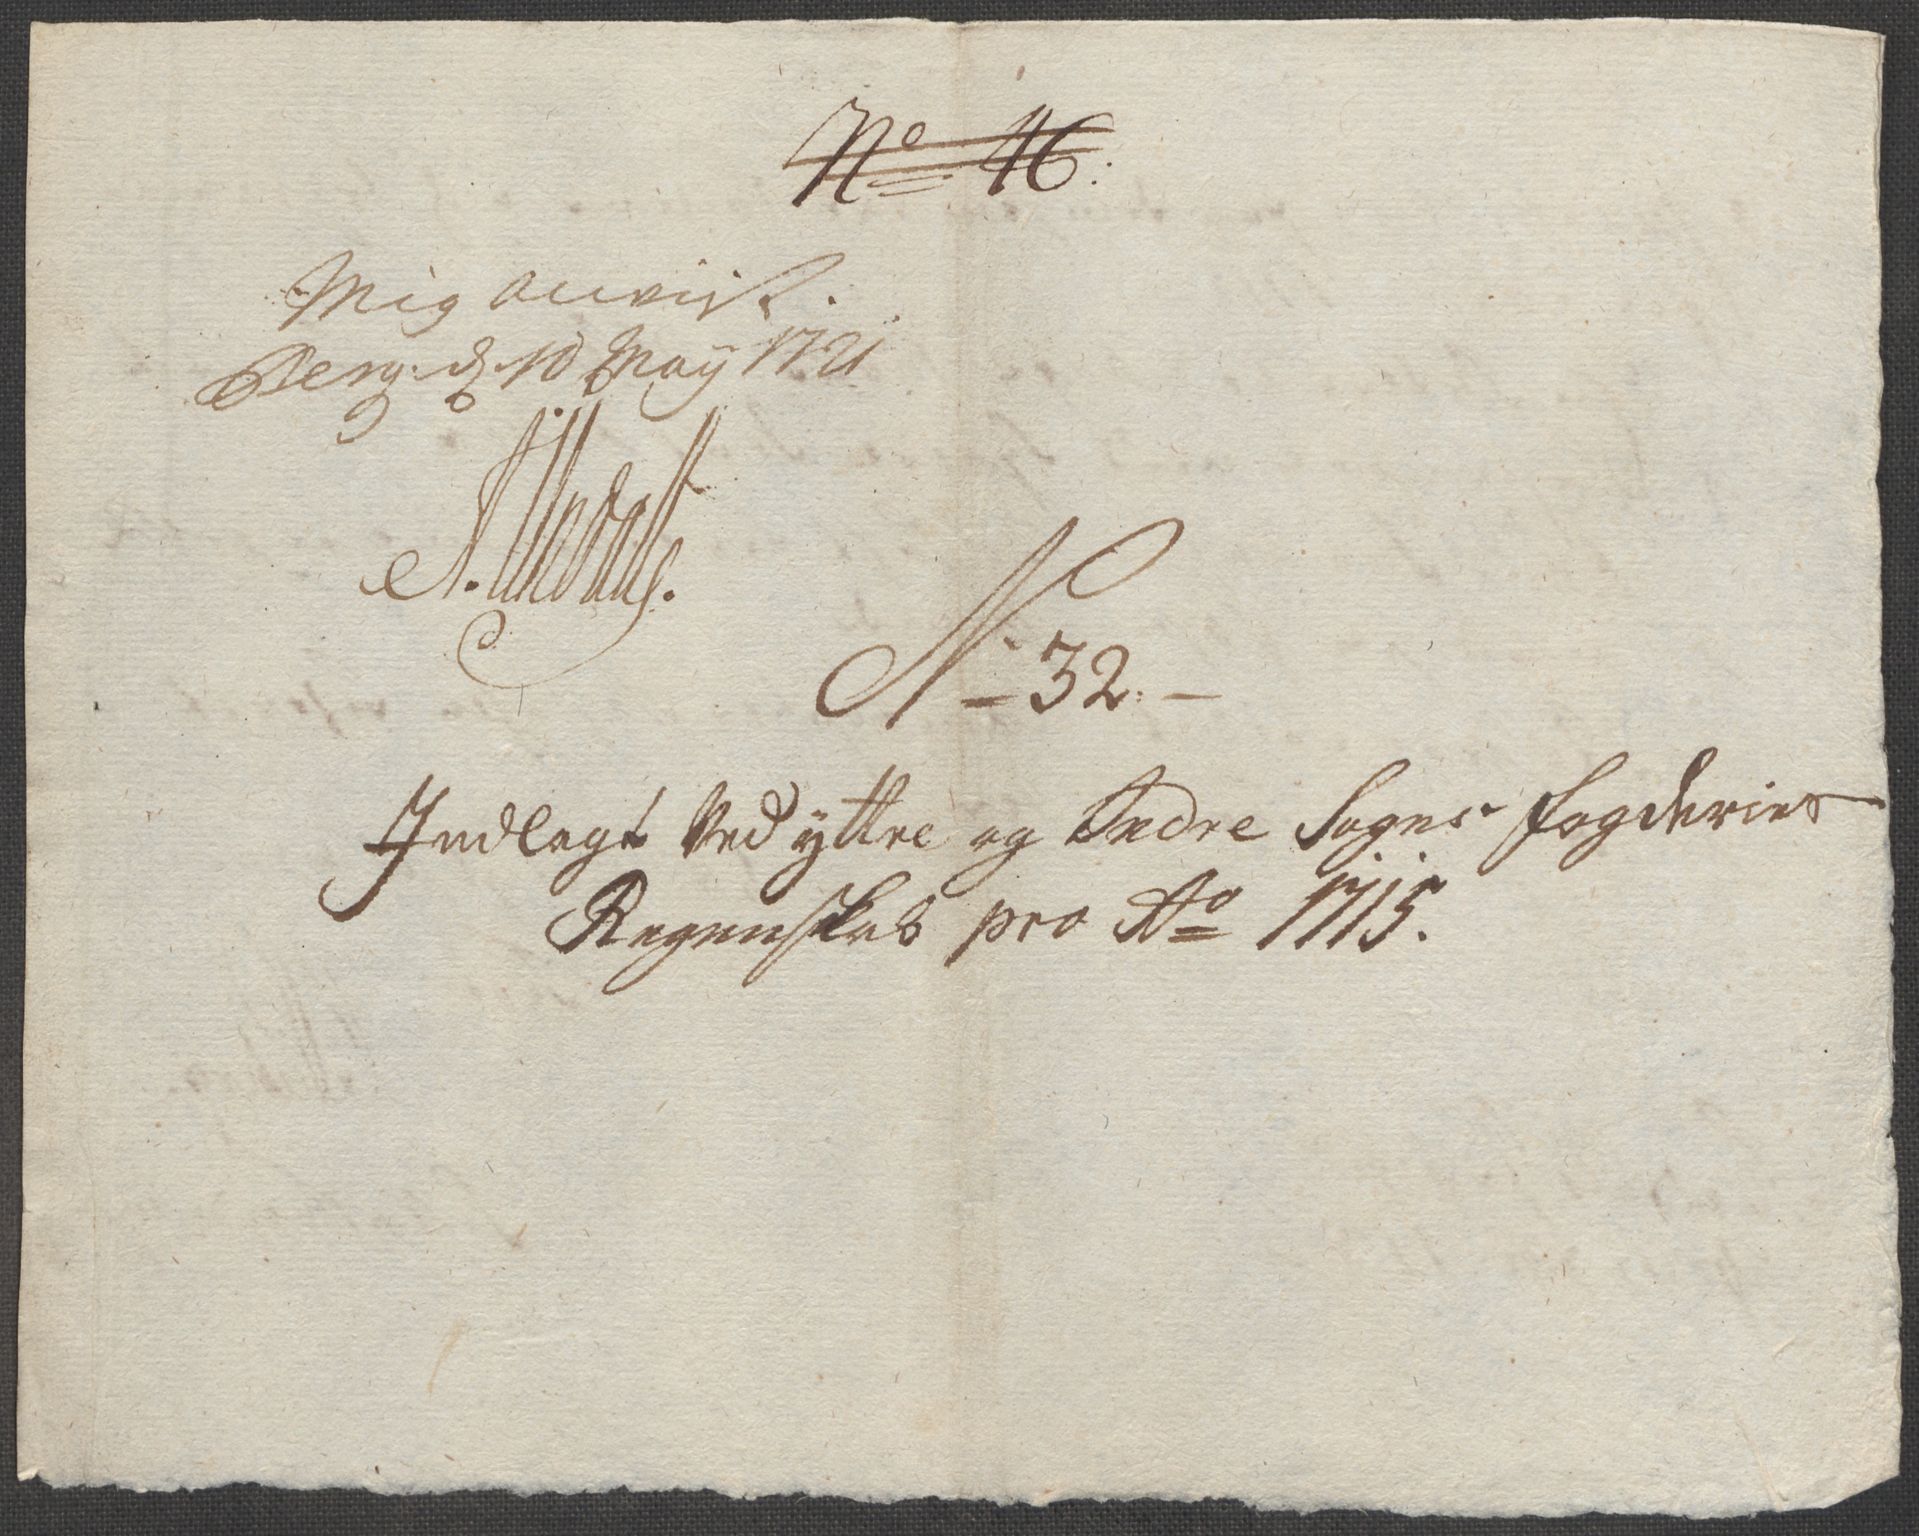 No 46:
Mig anvist.
Berg. d. 10 May 1721
N 32.
Indlagt Ved yttre og Indre Sogns fogderies
Regenskab pro Ao 1715.